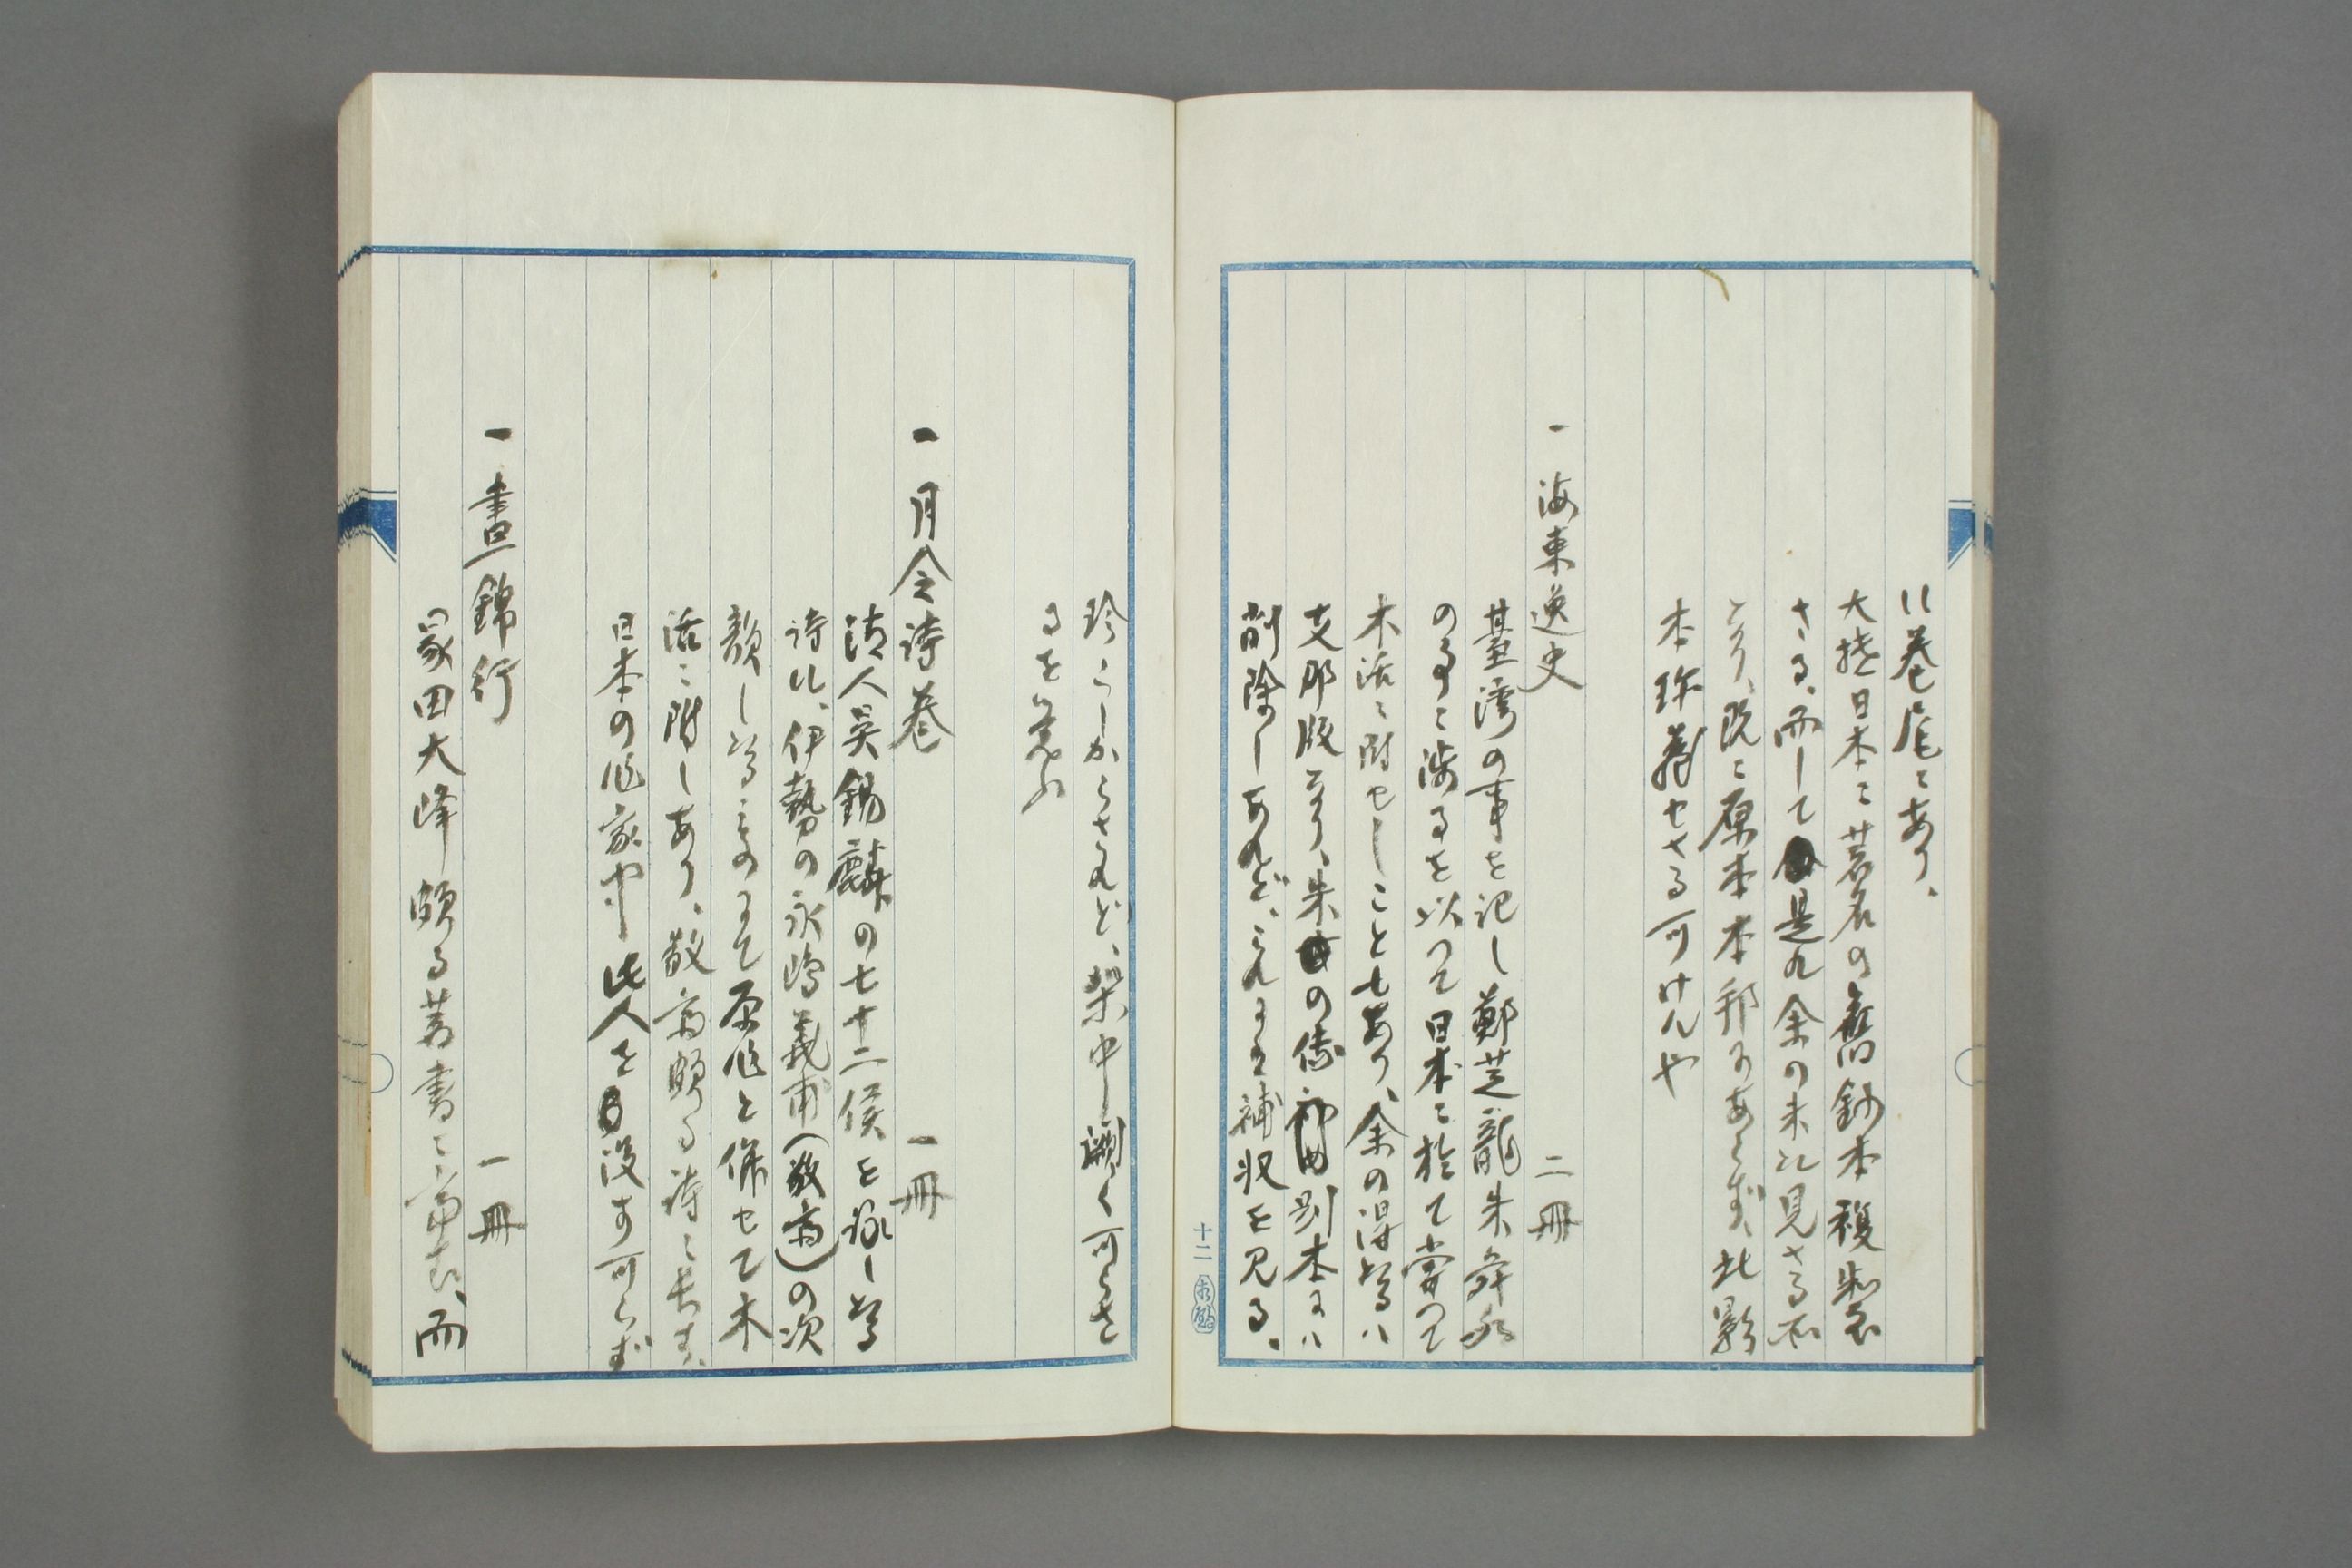 ハ巻尾にあり、
大抵日本に著名の舊鈔本複製
さる、而して是れ余の未だ見さる所
とす、既に原本本邦にあらず、此影
本珍蔵せさる可けんや
一 海東逸史 二冊
臺湾の事を記し鄭芝龍朱舜水
の事に渉るを以つて日本に於て嘗つて
木活に附せしこともあり、余の得たるハ
支那版なり、朱の傳 刻本にハ
削除しあれど、これにハ補収を見る、
十二
珍らしからされど、架中闕く可らさ
るを覚ふ
一 月令詩巻 一冊
清人吳錫麟の七十二候を詠し
詩に、伊勢の永嶋義甫(敬斎)の次
韻したるものにて原作と併せて木
活に附しあり、敬斎頗る詩に長す、
日本の作家中此人を没す可らず
一 晝錦行 一冊
冢田大峰頗る著書に富む、而